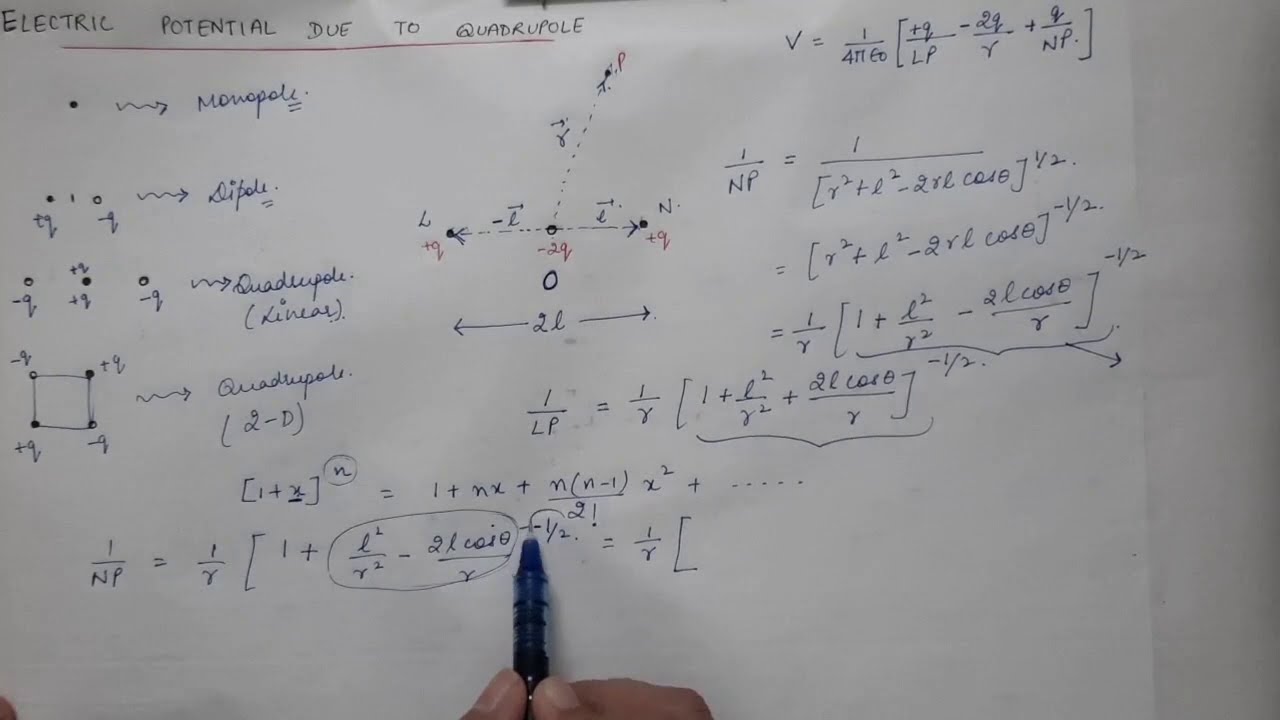 ELECTRIC POTENTIAL DUE TO QUADRUPOLE
V = 1/4πε0 [+q/LP - 2q/r + q/NP.]
• ⇝ Monopole.
+q -q ⇝ Dipole.
-q +q +q -q ⇝ Quadrupole. (Linear).
-q +q +q -q ⇝ Quadrupole. (2-D)
P
r⃗
L -l⃗ l⃗ N.
+q -2q +q
O
2l
1/NP = 1/[r²+l²-2rl cosθ]^1/2.
= [r²+l²-2rl cosθ]^-1/2.
= 1/r [1 + l²/r² - 2l cosθ/r]^-1/2
1/LP = 1/r [1 + l²/r² + 2l cosθ/r]^-1/2.
[1+x]^n = 1 + nx + n(n-1)/2! x² + .....
1/NP = 1/r [1 + l²/r² - 2l cosθ/r]^-1/2. = 1/r [